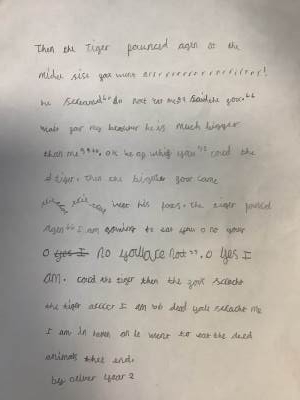 Then the Tiger pounced agen at the
midel sise gou went arrrrrrrrrrrrrrrr!
he screamed“ do not eat me” saide the gou.“
wait for my brouther he is much bigger
than me”. ok be of whith you” caid the
tiger. then the biggist gout came
went his foos. the tiger pounced
agen “ I am to eat you o no your
o yes I no you are not”. o yes I
am. caid the tiger then the gout scracht
the tiger I am dead you scracht me
I am in he went to eat the deed
animals the end.
by oliver year 2